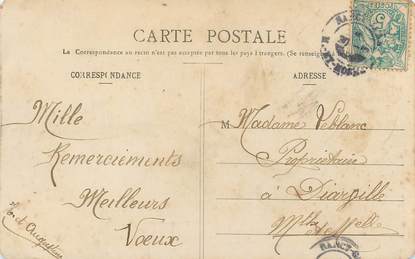 CARTE POSTALE
La Correspondance au recto n'est pas acceptée par tous les pays étrangers. (Se renseigner
CORRESPONDANCE
ADRESSE
Mille
Remerciements
Meilleurs
Voeux
et Augustine
M Madame Leblanc
Propriétaire
à Diarville
Mthe et Melle
NANCY